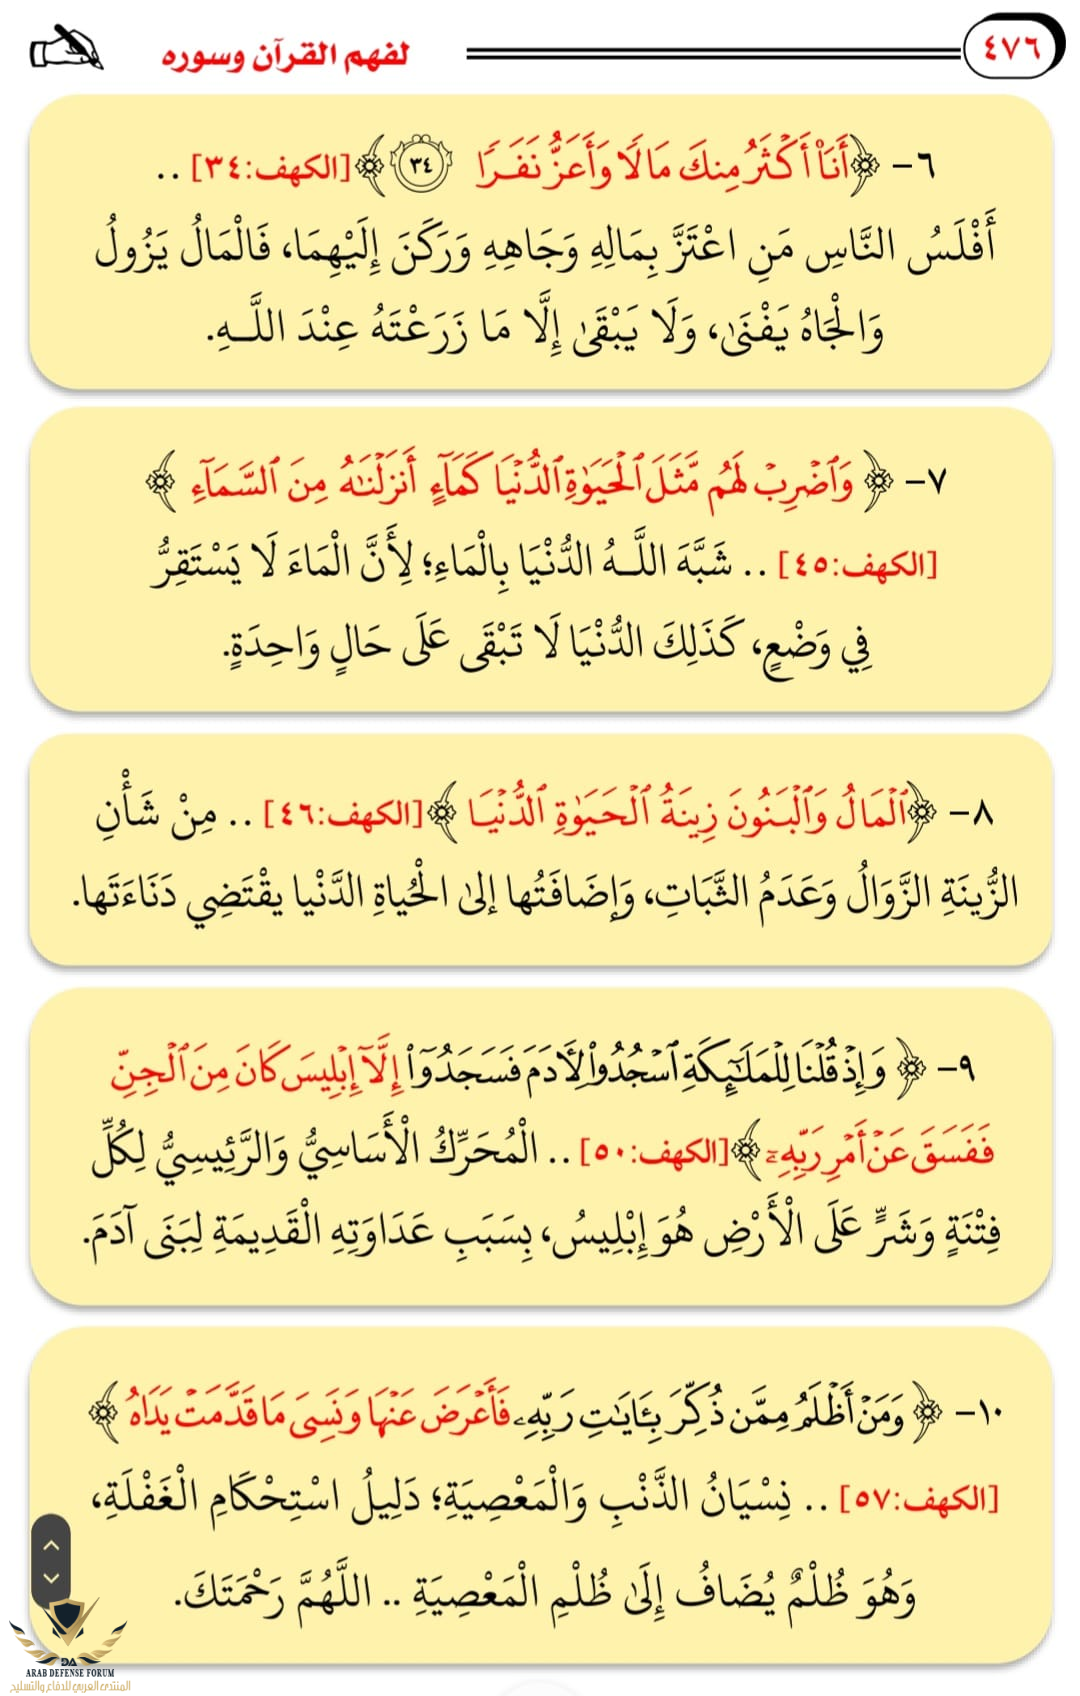 ٤٧٦
لفهم القرآن وسوره
٦- ﴿أَنَا۠ أَكۡثَرُ مِنكَ مَالٗا وَأَعَزُّ نَفَرٗا ٣٤﴾ [الكهف:٣٤] ..
أَفْلَسُ النَّاسِ مَنِ اعْتَزَّ بِمَالِهِ وَجَاهِهِ وَرَكَنَ إِلَيْهِمَا، فَالْمَالُ يَزُولُ
وَالْجَاهُ يَفْنَىٰ، وَلَا يَبْقَىٰ إِلَّا مَا زَرَعْتَهُ عِنْدَ اللَّـهِ.
٧- ﴿وَٱضۡرِبۡ لَهُم مَّثَلَ ٱلۡحَيَوٰةِ ٱلدُّنۡيَا كَمَآءٍ أَنزَلۡنَٰهُ مِنَ ٱلسَّمَآءِ﴾
[الكهف:٤٥] .. شَبَّهَ اللَّـهُ الدُّنْيَا بِالْمَاءِ؛ لِأَنَّ الْمَاءَ لَا يَسْتَقِرُّ
فِي وَضْعٍ، كَذَلِكَ الدُّنْيَا لَا تَبْقَى عَلَى حَالٍ وَاحِدَةٍ.
٨- ﴿ٱلۡمَالُ وَٱلۡبَنُونَ زِينَةُ ٱلۡحَيَوٰةِ ٱلدُّنۡيَا﴾ [الكهف:٤٦] .. مِنْ شَأْنِ
الزُّينَةِ الزَّوَالُ وَعَدَمُ الثَّبَاتِ، وَإِضَافَتُها إلىٰ الْحُياةِ الدَّنْيا يقْتَضِي دَنَاءَتَها.
٩- ﴿وَإِذۡ قُلۡنَا لِلۡمَلَٰٓئِكَةِ ٱسۡجُدُواْ لِأٓدَمَ فَسَجَدُوٓاْ إِلَّآ إِبۡلِيسَ كَانَ مِنَ ٱلۡجِنِّ
فَفَسَقَ عَنۡ أَمۡرِ رَبِّهِۦٓ﴾ [الكهف:٥٠] .. الْمُحَرِّكُ الْأَسَاسِيُّ وَالرَّئِيسِيُّ لِكُلِّ
فِتْنَةٍ وَشَرٍّ عَلَى الْأَرْضِ هُوَ إِبْلِيسُ، بِسَبَبِ عَدَاوَتِهِ الْقَدِيمَةِ لِبَنَى آدَمَ.
١٠- ﴿وَمَنۡ أَظۡلَمُ مِمَّن ذُكِّرَ بِـَٔايَٰتِ رَبِّهِۦ فَأَعۡرَضَ عَنۡهَا وَنَسِيَ مَا قَدَّمَتۡ يَدَاهُ﴾
[الكهف:٥٧] .. نِسْيَانُ الذَّنْبِ وَالْمَعْصِيَةِ؛ دَلِيلُ اسْتِحْكَامِ الْغَفْلَةِ،
وَهُوَ ظُلْمٌ يُضَافُ إِلَىٰ ظُلْمِ الْمَعْصِيَةِ .. اللَّهُمَّ رَحْمَتَكَ.
DA
ARAB DEFENSE FORUM
المنتدى العربي للدفاع والتسليح